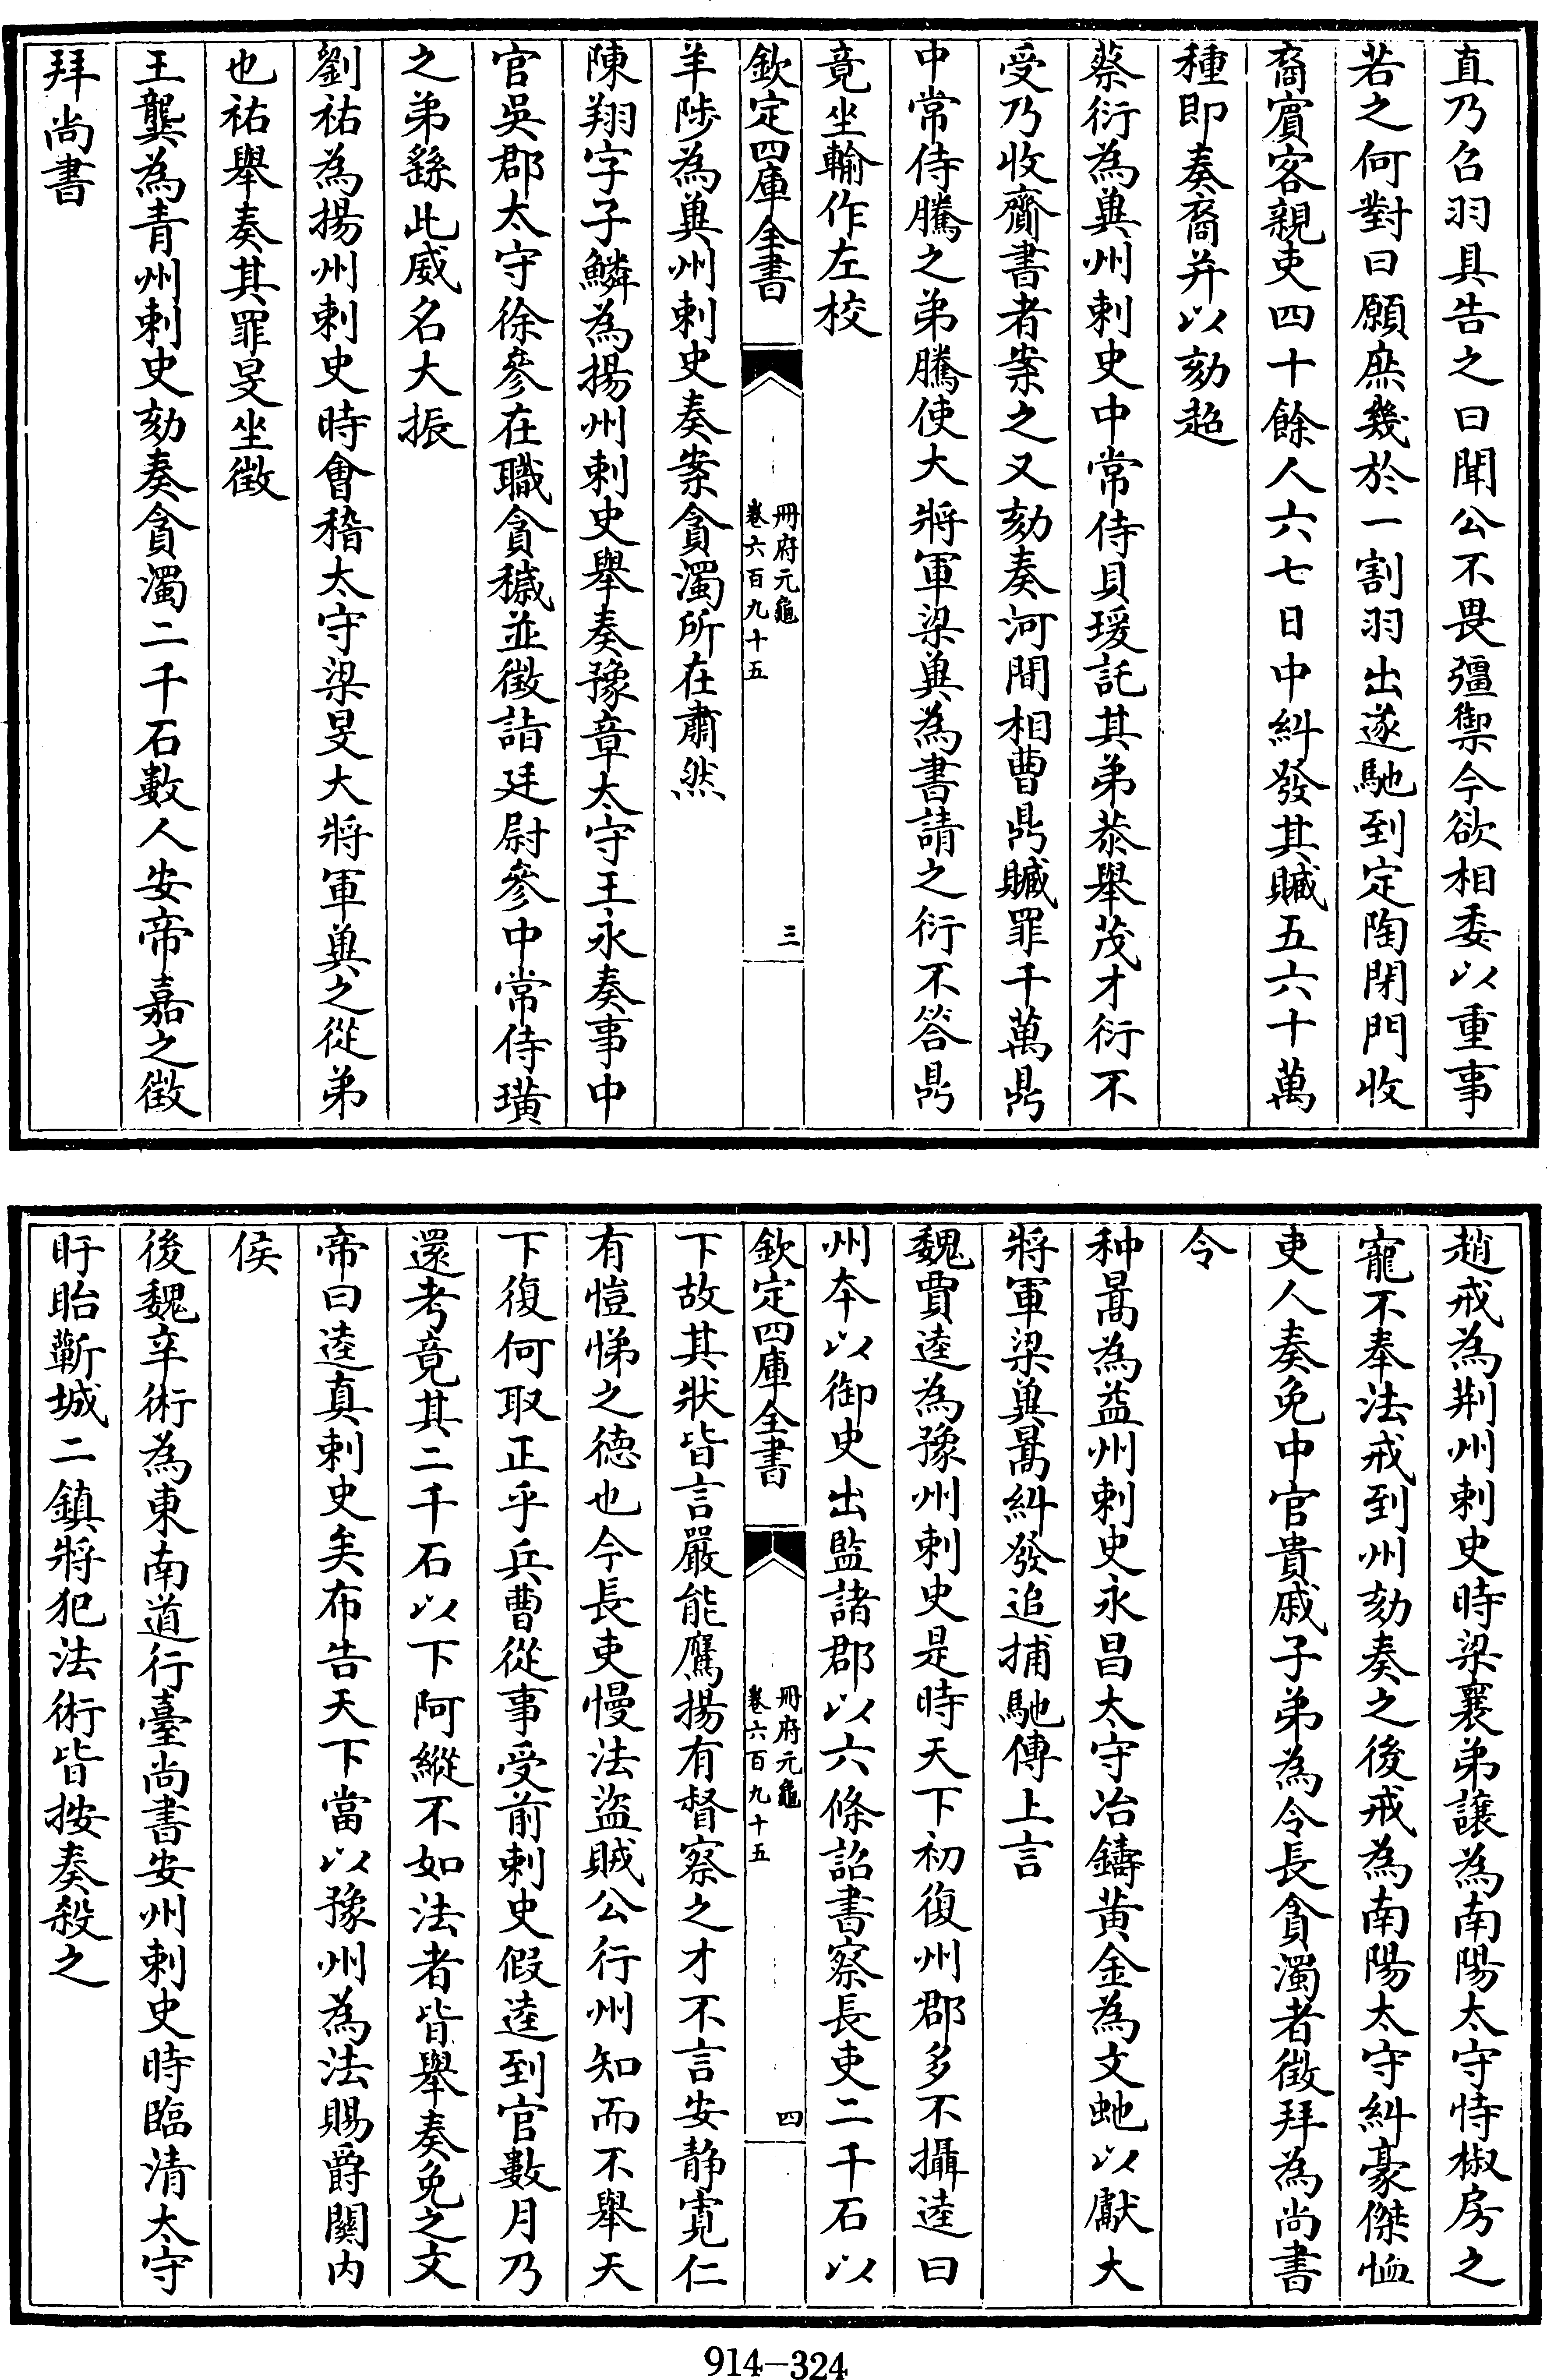 直乃召羽具告之曰聞公不畏彊禦今欲相委以重事
若之何對曰願庶幾於一割羽出遂馳到定陶閉門收
裔賓客親吏四十餘人六七日中糾發其贓五六十萬
種即奏裔并以劾超
蔡衍為兾州刺史中常侍具瑗託其弟恭舉茂才衍不
受乃收齎書者案之又劾奏河間相曹鼎贓罪千萬鼎
中常侍騰之弟騰使大將軍梁兾為書請之衍不答鼎
竟坐輸作左校
欽定四庫全書
冊府元龜
卷六百九十五
三
羊陟為兾州刺史奏案貪濁所在肅然
陳翔字子鱗為揚州刺史舉奏豫章太守王永奏事中
官吳郡太守徐參在職貪穢並徵詣廷尉參中常侍璜
之弟繇此威名大振
劉祐為揚州刺史時會稽太守梁旻大將軍兾之從弟
也祐舉奏其罪旻坐徵
王龔為青州刺史劾奏貪濁二千石數人安帝嘉之徵
拜尚書
趙戒為荆州刺史時梁襄弟讓為南陽太守恃椒房之
寵不奉法戒到州劾奏之後戒為南陽太守糾豪傑恤
吏人奏免中官貴戚子弟為令長貪濁者徵拜為尚書
令
种暠為益州刺史永昌太守冶鑄黃金為文虵以獻大
將軍梁兾暠糾發追捕馳傳上言
魏賈逵為豫州刺史是時天下初復州郡多不攝逵曰
州本以御史出監諸郡以六條詔書察長吏二千石以
欽定四庫全書
冊府元龜
卷六百九十五
四
下故其狀皆言嚴能鷹揚有督察之才不言安静寬仁
有愷悌之德也今長吏慢法盜賊公行州知而不舉天
下復何取正乎兵曹從事受前刺史假逵到官數月乃
還考竟其二千石以下阿縱不如法者皆舉奏免之文
帝曰逵真刺史矣布告天下當以豫州為法賜爵關内
侯
後魏辛術為東南道行臺尚書安州刺史時臨清太守
盱眙蘄城二鎮將犯法術皆按奏殺之
914-324